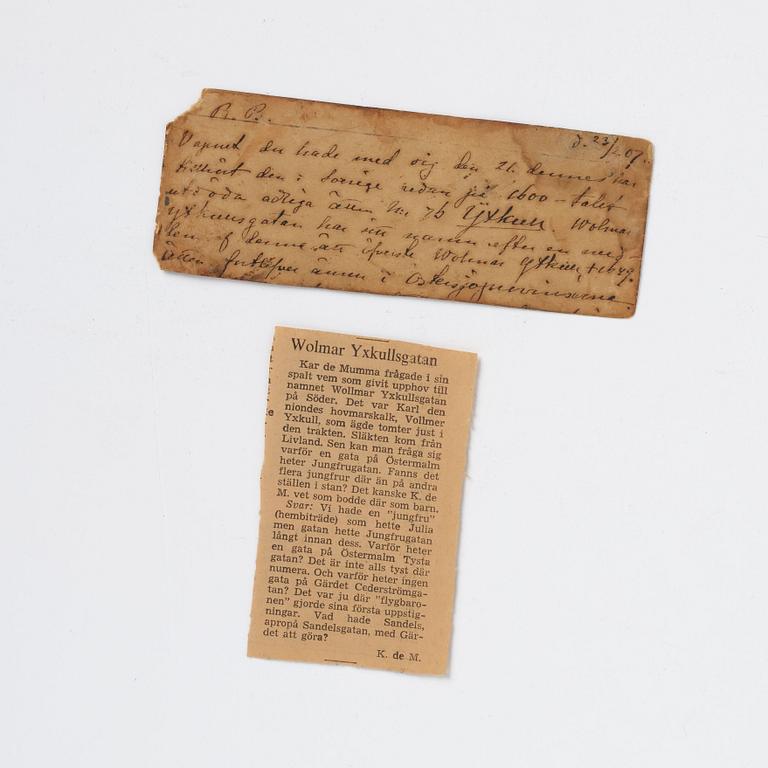 B. B.
d. 23/2 07.
Vapnet du hade med sig den 21 dennes har
tillhört den i Sverige redan på 1600-talet
utdöda adliga ätten Nr 76 Yxkull. Wolmar
Yxkullsgatan har sitt namn efter en med-
lem af denna ätt öfverste Wolmar Yxkull, † 1649.
Ätten fortlefver ännu i Östersjöprovinserna.
Wolmar Yxkullsgatan
Kar de Mumma frågade i sin
spalt vem som givit upphov till
namnet Wollmar Yxkullsgatan
på Söder. Det var Karl den
niondes hovmarskalk, Vollmer
Yxkull, som ägde tomter just i
den trakten. Släkten kom från
Livland. Sen kan man fråga sig
varför en gata på Östermalm
heter Jungfrugatan. Fanns det
flera jungfrur där än på andra
ställen i stan? Det kanske K. de
M. vet som bodde där som barn.
Svar: Vi hade en "jungfru"
(hembiträde) som hette Julia
men gatan hette Jungfrugatan
långt innan dess. Varför heter
en gata på Östermalm Tysta
gatan? Det är inte alls tyst där
numera. Och varför heter ingen
gata på Gärdet Cederströmga-
tan? Det var ju där "flygbaro-
nen" gjorde sina första uppstig-
ningar. Vad hade Sandels,
apropå Sandelsgatan, med Gär-
det att göra?
K. de M.